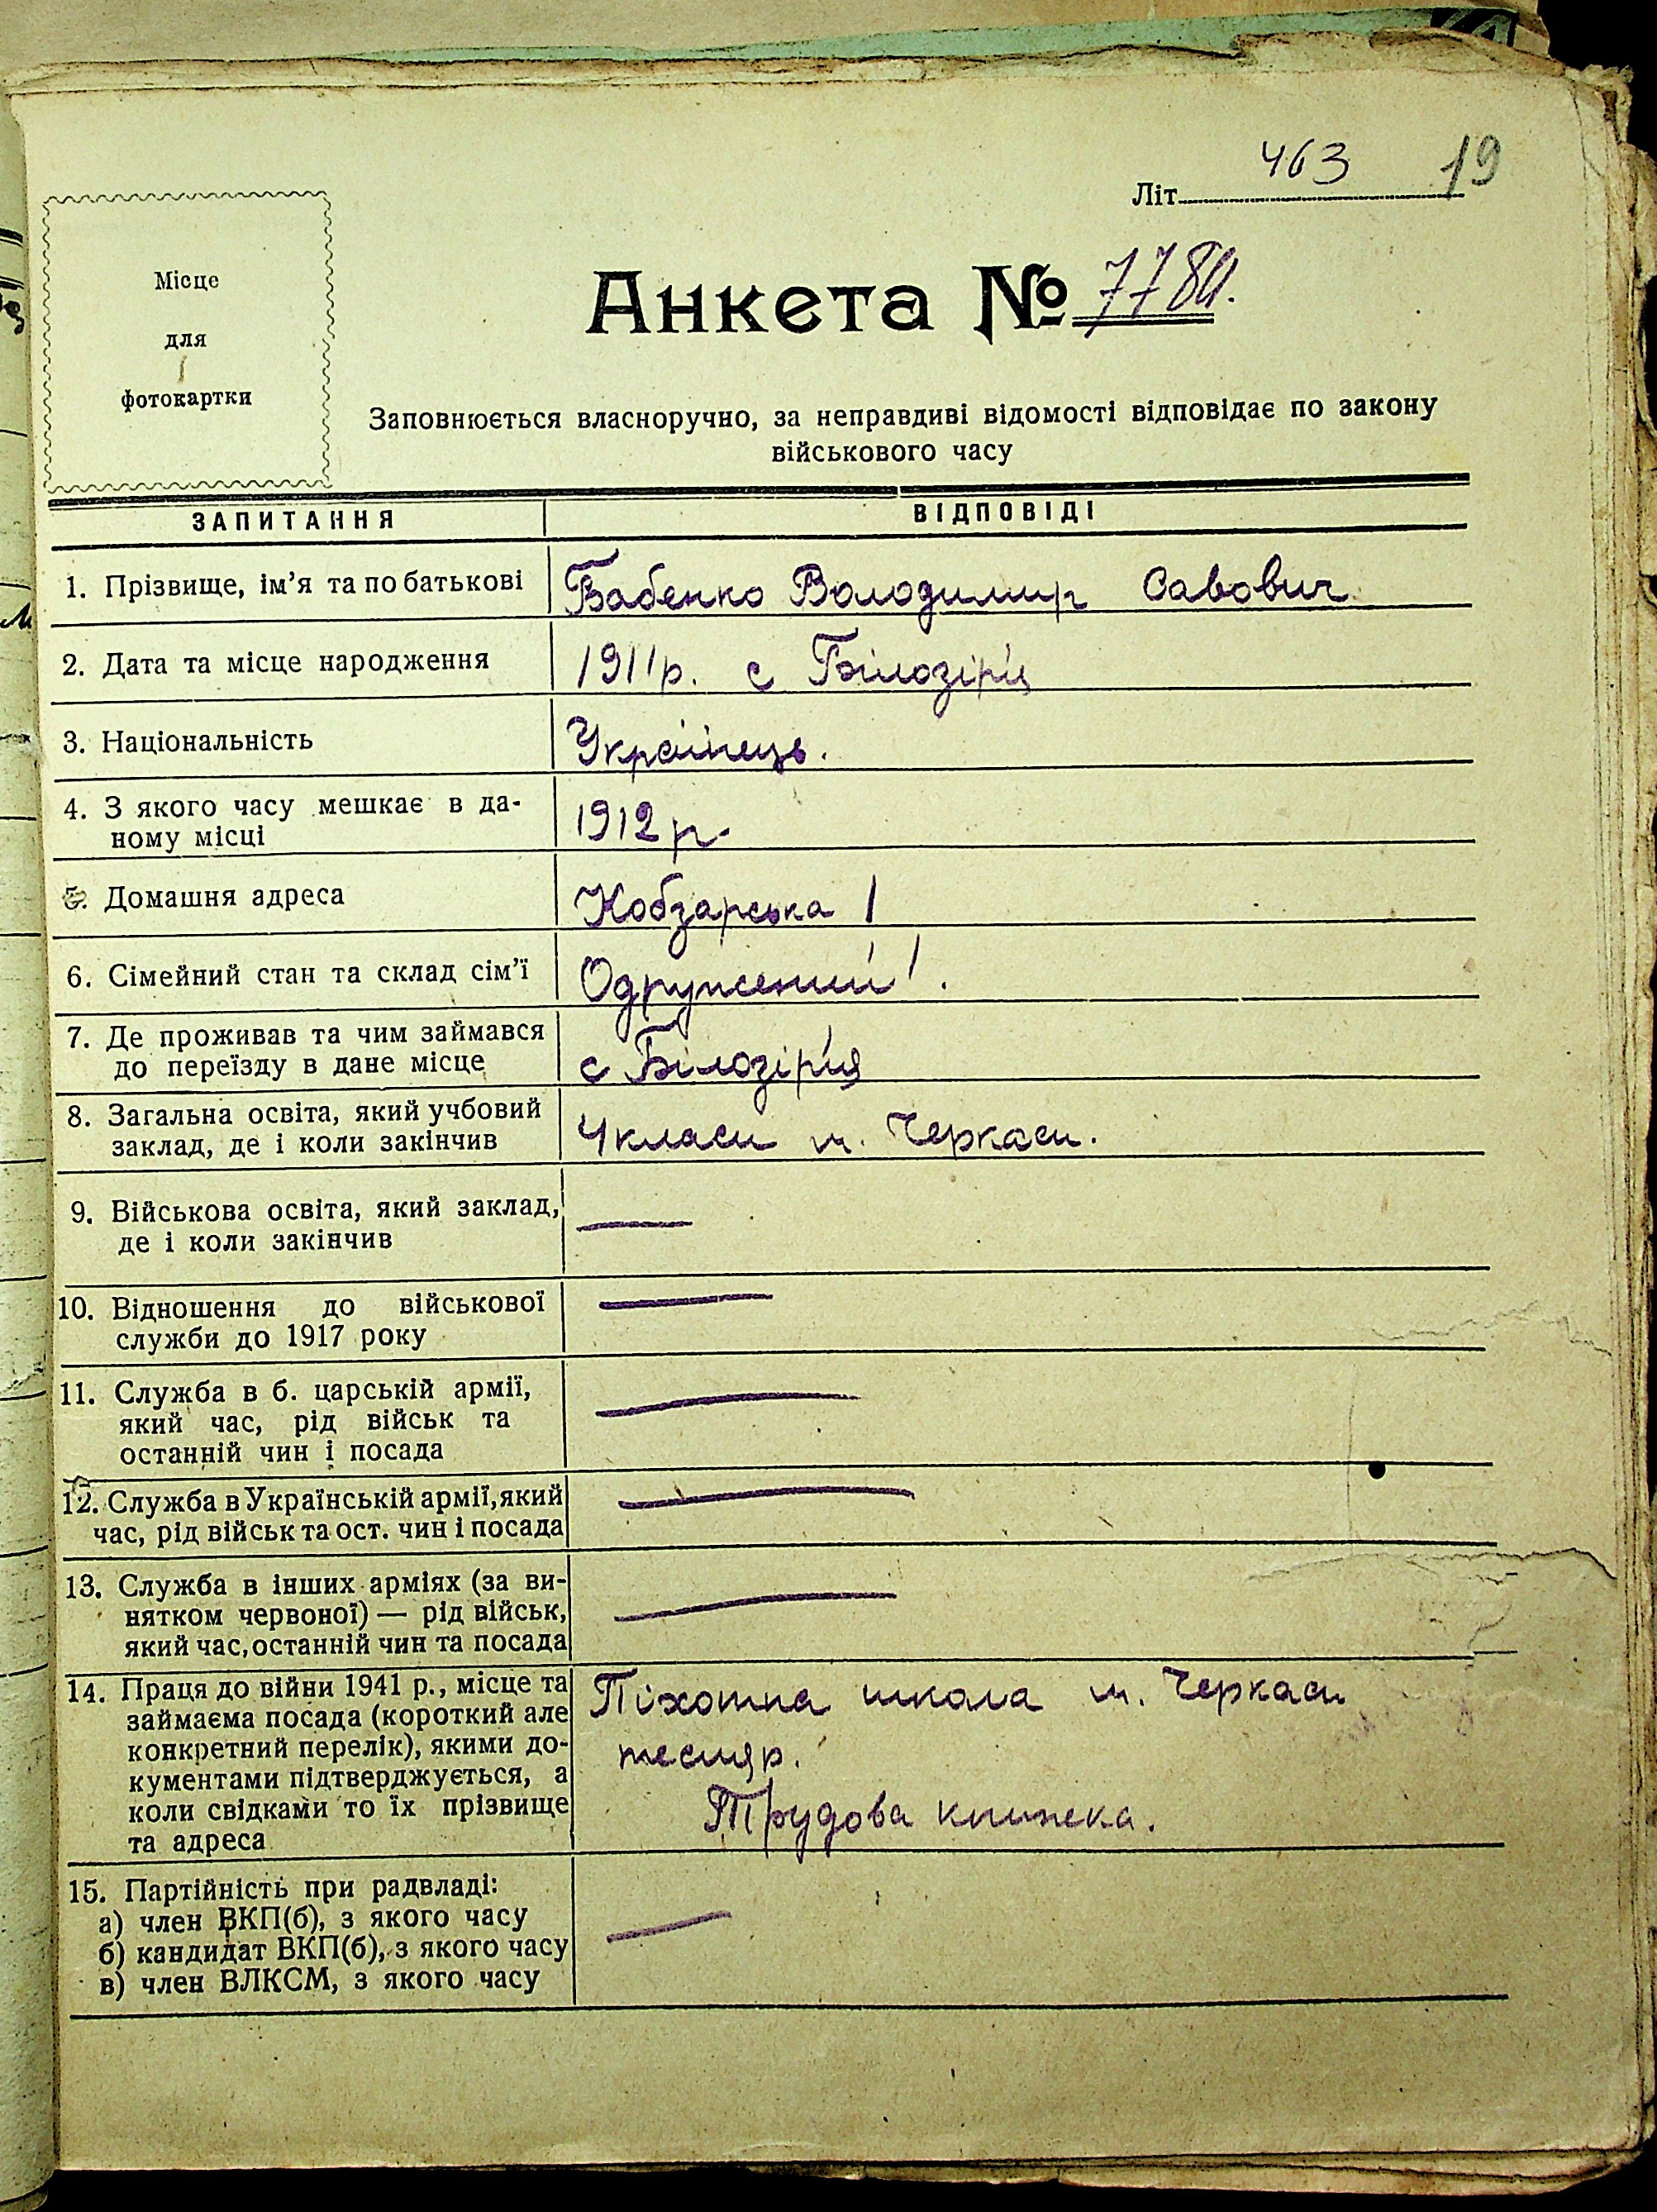 463 19
Літ
Місце
для
фотокартки
Анкета №
Заповнюється власноручно, за неправдиві відомості відповідає по закону
військового часу
ЗАПИТАННЯ ВІДПОВІДІ
1. Прізвище, ім'я та по батькові Бабенко Володимир Савович
2. Дата та місце народження 1911р. с Білозірʼя
3. Національність Українець.
4. З якого часу мешкає в да-
ному місці 1912 р.
5. Домашня адреса Кобзарська 1
6. Сімейний стан та склад сім'ї Одружений
7. Де проживав та чим займався
до переїзду в дане місце с Білозір'я
8. Загальна освіта, який учбовий
заклад, де і коли закінчив 4 класи м. Черкаси.
9. Військова освіта, який заклад,
де і коли закінчив —
10. Відношення до військової
служби до 1917 року —
11. Служба в б. царській армії,
який час, рід військ та
останній чин і посада —
12. Служба в Українській армії, який
час, рід військ та ост. чин і посада —
13. Служба в інших арміях (за ви-
нятком червоної) — рід військ,
який час, останній чин та посада —
14. Праця до війни 1941 р., місце та
займаєма посада (короткий але
конкретний перелік), якими до-
кументами підтверджується, а
коли свідками то їх прізвище
та адреса
Піхотна школа м. Черкаси
тесляр.
Трудова книжека.
15. Партійність при радвладі:
а) член ВКП(б), з якого часу
б) кандидат ВКП(б), з якого часу
в) член ВЛКСМ, з якого часу
—